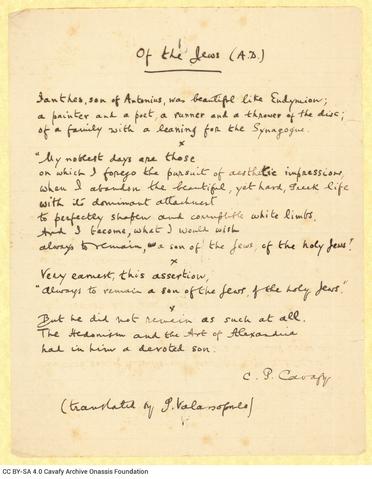 Of the Jews (A.D.)
Ianthes, son of Antonius, was beautiful like Endymion;
a painter and a poet, a runner and a thrower of the disc;
of a family with a leaning for the Synagogue.
x
"My noblest days are those
on which I forego the pursuit of aesthetic impressions,
when I abandon the beautiful, yet hard, Greek life
with its dominant attachment
to perfectly shapen and corruptible white limbs.
And I become, what I would wish
always to remain, a son of the Jews, of the holy Jews!
x
Very earnest, this assertion,
"Always to remain a son of the Jews, of the holy Jews."
x
But he did not remain as such at all.
The Hedonism and the Art of Alexandria
had in him a devoted son.
C. P. Cavafy
(translated by G. Valassopoulo)
CC BY-SA 4.0 Cavafy Archive Onassis Foundation